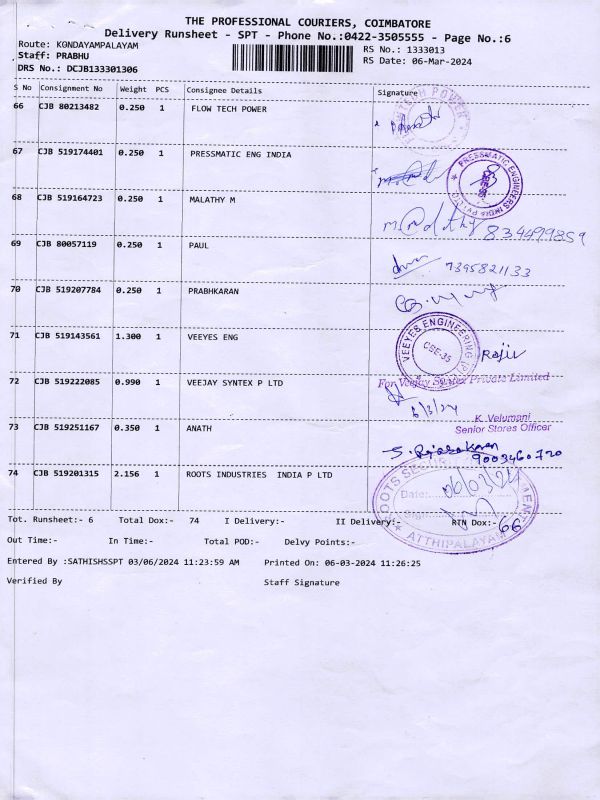 THE PROFESSIONAL COURIERS, COIMBATORE
Delivery Runsheet - SPT - Phone No.:0422-3505555 - Page No.:6
Route: KONDAYAMPALAYAM
RS No.: 1333013
Staff: PRABHU
RS Date: 06-Mar-2024
DRS No.: DCJB133301306
S No Consignment No Weight PCS Consignee Details Signature
66 CJB 80213482 0.250 1 FLOW TECH POWER
67 CJB 519174401 0.250 1 PRESSMATIC ENG INDIA
PRESSMATIC ENGINEERS INDIA PVT LTD
68 CJB 519164723 0.250 1 MALATHY M
834499859
69 CJB 80057119 0.250 1 PAUL
7395821133
70 CJB 519207784 0.250 1 PRABHKARAN
71 CJB 519143561 1.300 1 VEEYES ENG
VEEYES ENGINEERING (P)
CBE-35
Rajiv
72 CJB 519222085 0.990 1 VEEJAY SYNTEX P LTD
For Veejay Syntex Private Limited
6/3/24
K. Velumani
Senior Stores Officer
73 CJB 519251167 0.350 1 ANATH
S. Rajasekaran
9003460720
74 CJB 519201315 2.156 1 ROOTS INDUSTRIES INDIA P LTD
Date:
ATTHIPALAYAM
Tot. Runsheet:- 6 Total Dox:- 74 I Delivery:- II Delivery:- RTN Dox:- 66
Out Time:- In Time:- Total POD:- Delvy Points:-
Entered By :SATHISHSSPT 03/06/2024 11:23:59 AM Printed On: 06-03-2024 11:26:25
Verified By Staff Signature